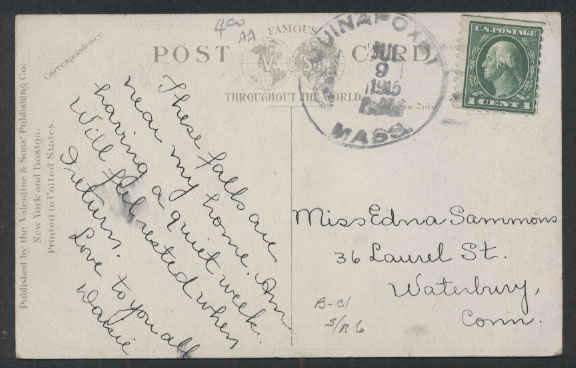 400
AA
FAMOUS
POST CARD
V S
THROUGHOUT THE WORLD
Only
Correspondence
QUINAPOXET
JUL
9
1915
MASS.
U.S. POSTAGE
1 CENT 1
Published by the Valentine & Sons' Publishing Co.
New York and Boston.
Printed in United States.
These falls are
near my home. Am
having a quiet week.
Will feel rested when
I return.
Love to you all
Miss Edna Sammons
36 Laurel St.
Waterbury,
Conn.
B-C1
S/R6